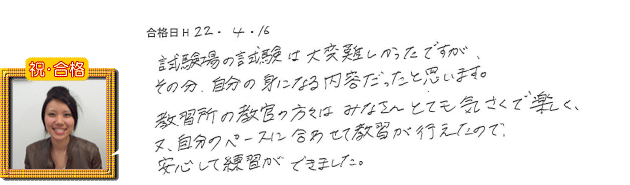 合格日 H 22・4・16
祝・合格
試験場の試験は大変難しかったですが、
その分、自分の身になる内容だったと思います。
教習所の教官の方々は みなさん とても気さくで楽しく、
又、自分のペースに合わせて教習が行えたので、
安心して練習ができました。